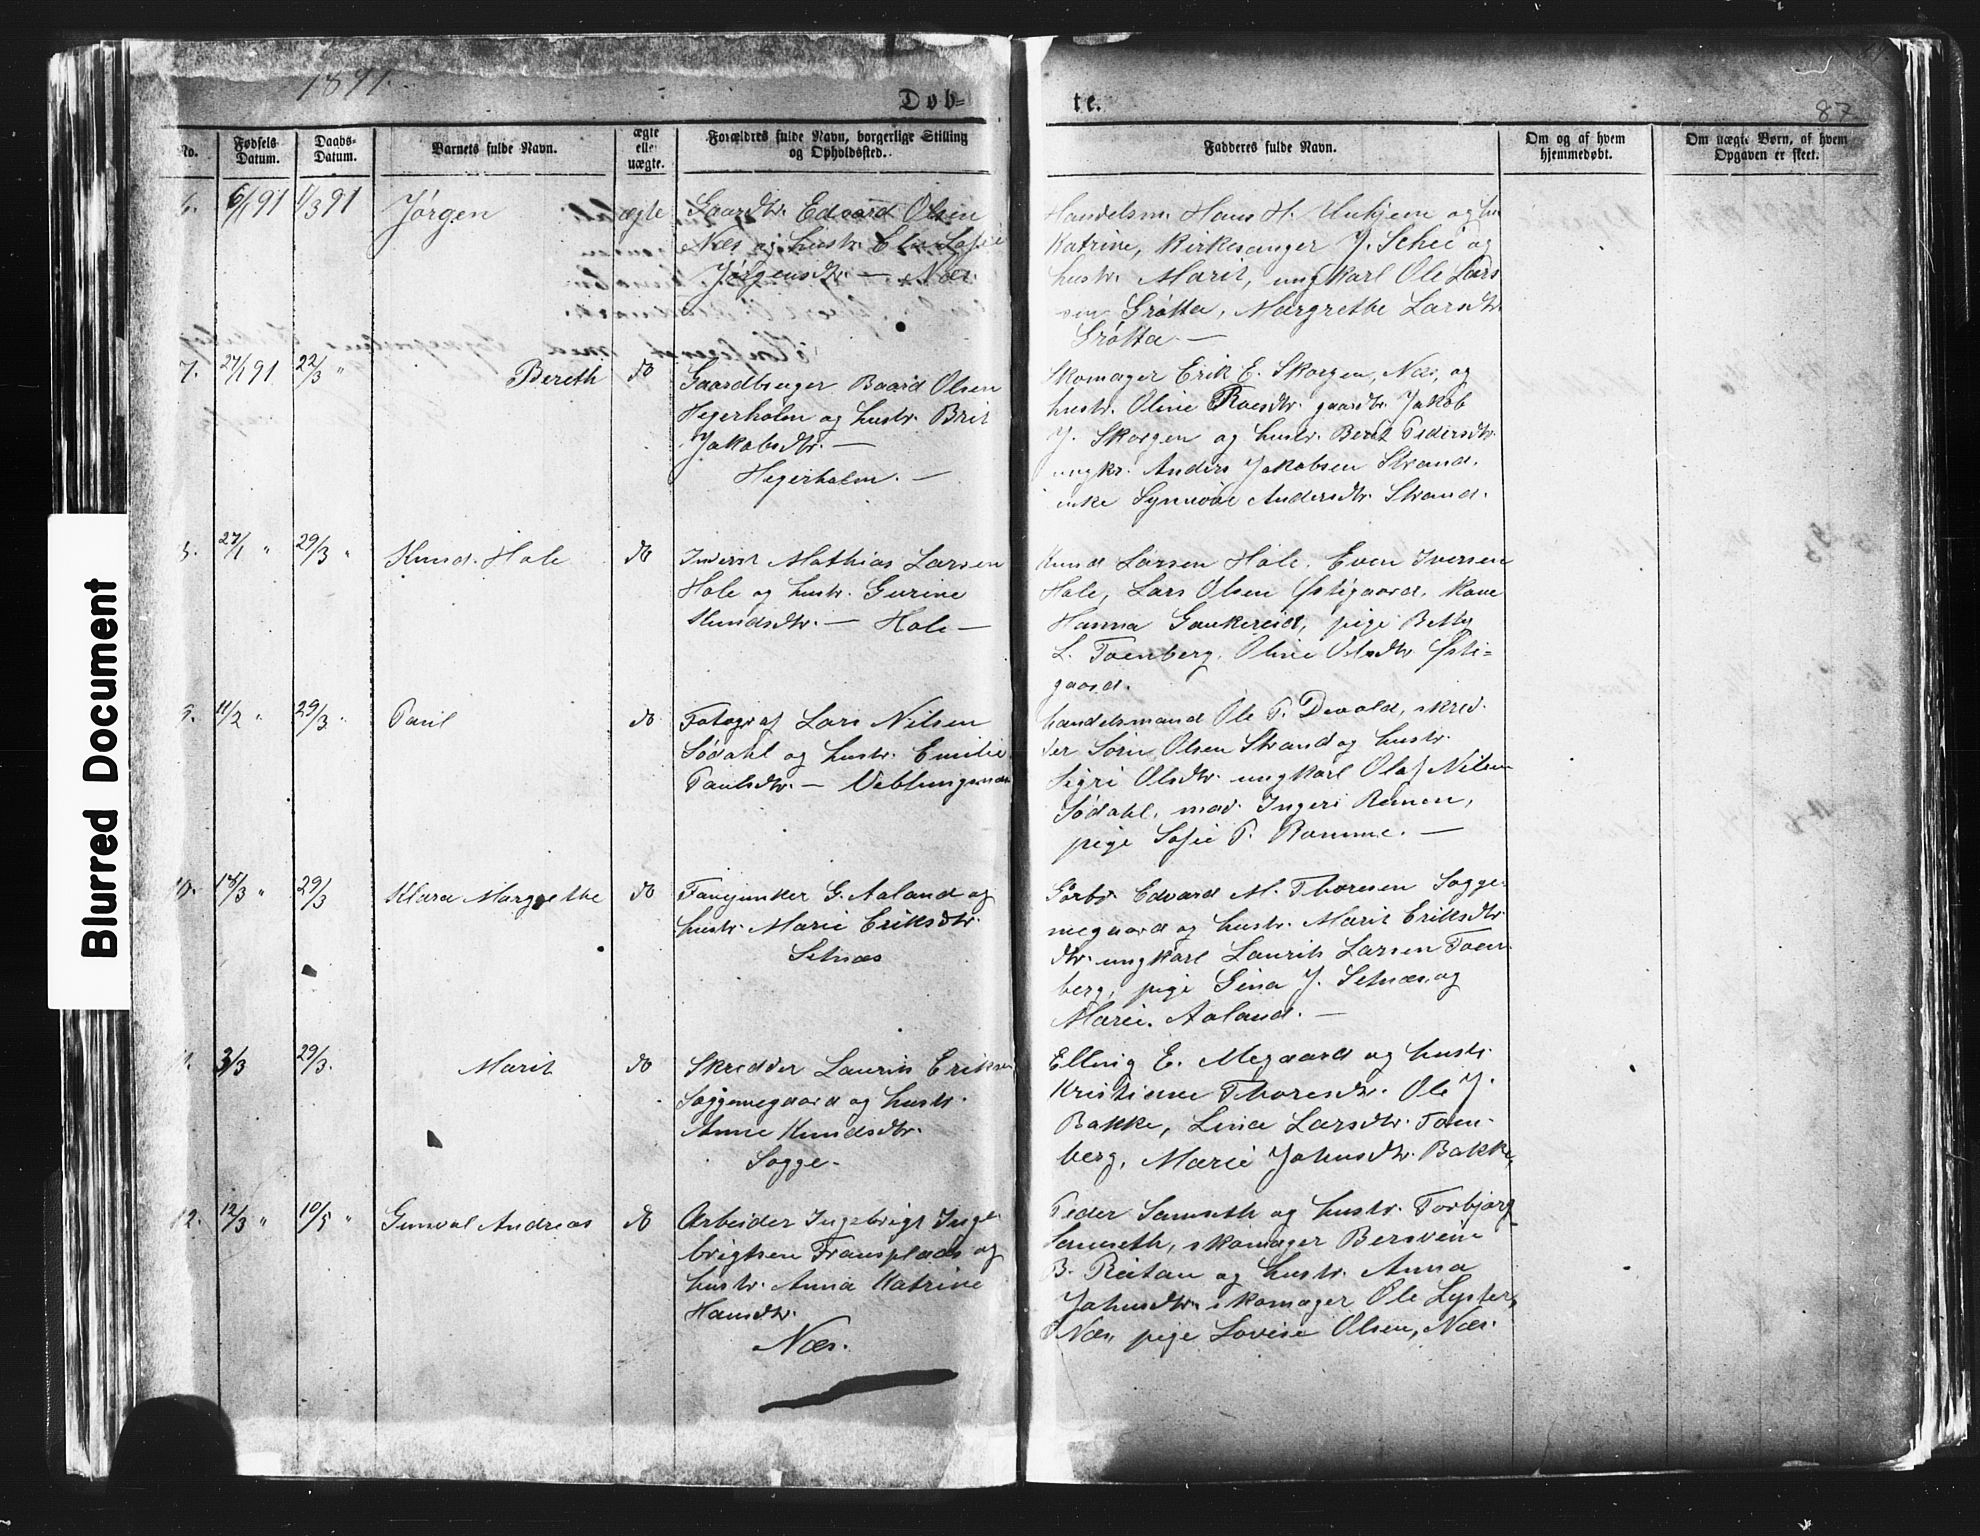 1891.
Døb=
te.
87
No.
Fødsels Datum.
Daabs= Datum.
Barnets fulde Navn.
ægte eller uægte.
Forældres fulde Navn, borgerlige Stilling og Opholdssted.
Fadderes fulde Navn.
Om og af hvem hjemmedøbt.
Om uægte Børn, af hvem Opgaven er skeet.
6. 6/1 91 1/3 91 Jørgen ægte
Gaardbr. Edvard Olsen
Næs og hustr. Sofie
Jørgensdtr. — Næs
Handelsm. Hans H. Unhjem og hu
Katrine, Kirkesanger J. Schei og
hustr. Marit, ungkarl Ole Lars
sen Grøtta, Margrethe Larsdtr.
Grøtta. —
7. 27/1 91 22/3 " Bereth do
Gaardbruger Baard Olsen
Hegerholm og hustr. Brit
Jakobsdtr. —
Hegerholm. —
Skomager Erik E. Skorgen, Næs, og
hustr. Oline Roesdtr. gaardbr. Jakob
J. Skorgen og hustr. Berit Pedersdtr.
ungkr. Anders Jakobsen Strand.
enke Synnøve Andersdtr. Strand.
8. 27/1 " 29/3 " Knud Hole do
Inderst Mathias Larsen
Hole og hustr. Gurine
Knudsdtr. — Hole —
Knud Larsen Hole, Even Iversen
Hole, Lars Olsen Østigaard, Kone
Hanna Gaukereid, pige Betty
L. Toenberg, Oline Olsdtr Østi=
gaard.
9. 11/2 " 29/3 " Paul do
Fotograf Lars Nilsen
Sødahl og hustr. Emilie
Paulsdtr. — Veblungsnæs
handelsmand Ole P. Devold, skred-
der Sørn Olsen Strand og hustr.
Sigri Olsdtr. ungkarl Olaf Nilsen
Sødahl, mad. Ingeri
pige Sofie P. Romme. —
10. 18/3 " 29/3 Klara Margrethe do
Fanejunker G. Aaland og
hustr. Marie Eriksdtr.
Setnæs
Gårbr. Edvard M. Thoresen Sogge-
megaard og hustr. Marit Eriksdtr.
dtr. ungkarl Laurits Larsen Toen-
berg, pige Gina J. Setnæs og
Marie Aaland. —
11. 3/3 29/3. Marit do
Skredder Laurits Eriksen
Soggemegaard og hustr.
Anne Knudsdtr.
Sogge.
Elling E. Megaard og hustr.
Kristianne Thoresdtr. Ole J.
Bakke, Lina Larsdtr. Toen-
berg, Marie Johnsdtr. Bakke,
12. 12/3 " 10/5 " Gunval Andreas do
Arbeider Ingebrigt Inge
brigtsen Fransplads og
hustr. Anna Katrine
Hansdtr.
Næs.
Peder Samseth og hustr. Torbjørg
Samseth, skomager Bersven
B. Reitan og hustr. Anna
Johnsdtr. skomager Ole Lyster,
Næs, pige Lovise Olsen, Næs.
Blurred Document